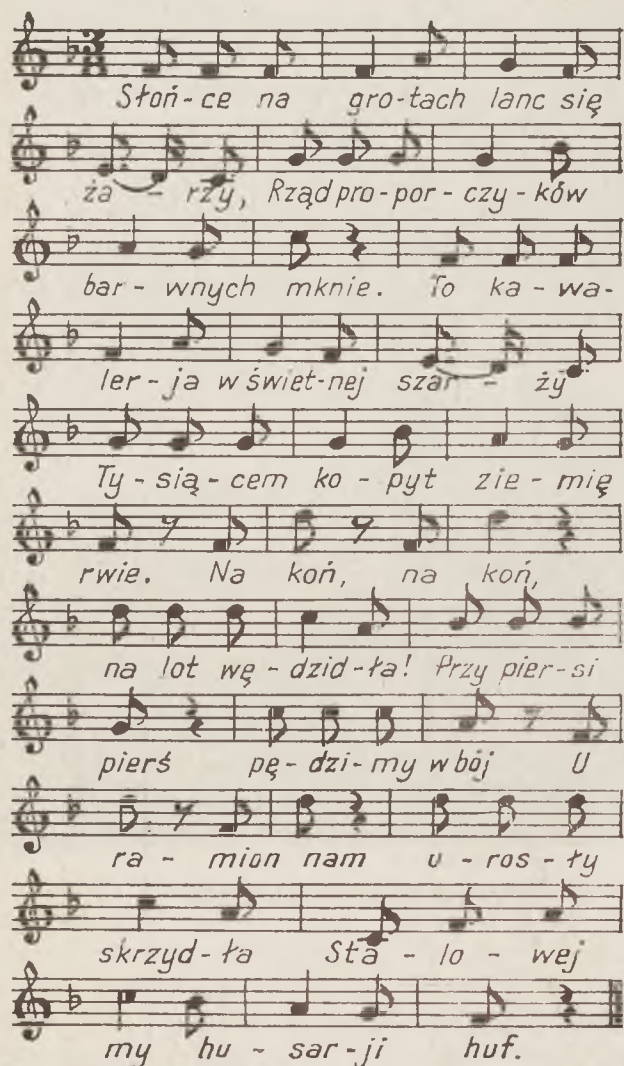 Słoń-ce na gro-tach lanc się
ża - rzy, Rząd pro-por-czy-ków
bar-wnych mknie. To ka-wa-
ler-ja w świet-nej szar - ży
Ty-sią-cem ko-pyt zie-mię
rwie. Na koń, na koń,
na lot wę-dzid-ła! Przy pier-si
pierś pę-dzi-my w bój U
ra - mion nam u-ros-ły
skrzyd-ła Sta-lo-wej
my hu-sar-ji huf.